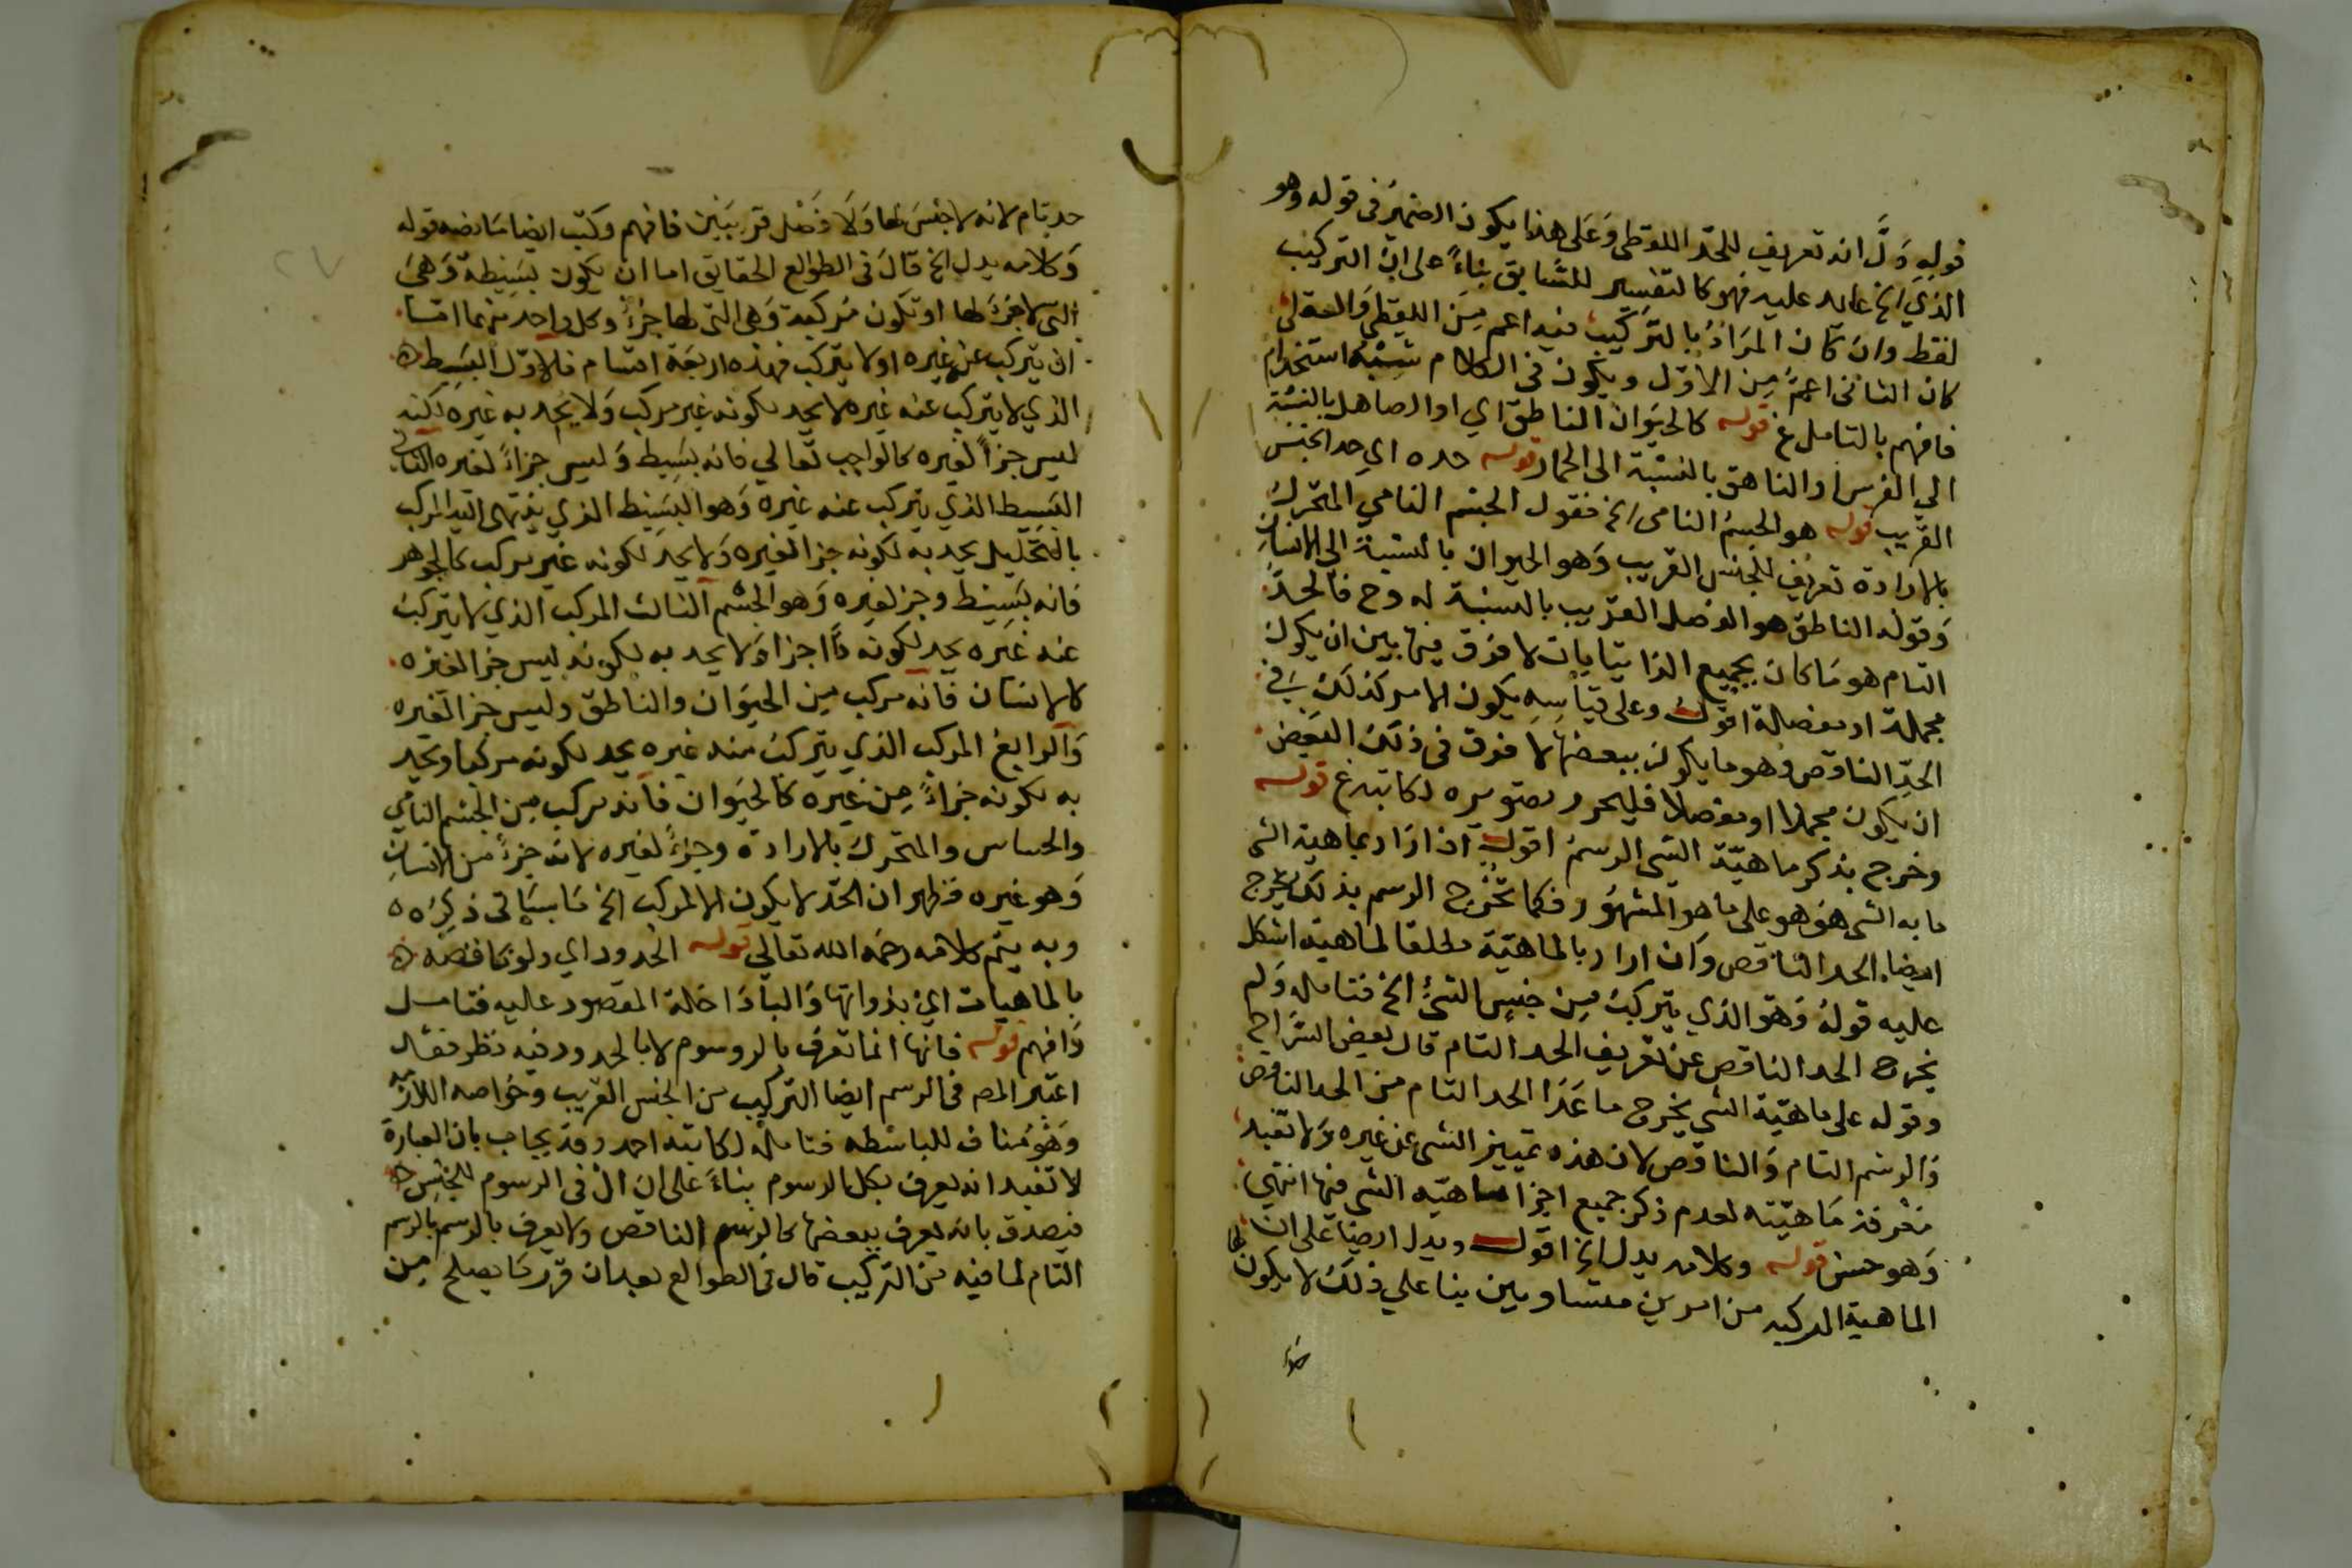 قوله دَلَّ انه تعريف للحد اللفظى وَعَلى هذا يكون الضمير فى قوله وهو
الذي الخ عايد عليه فهو كالتفسير للسَّابق بناءً على ان التركيب
لفظى وان كان المرَادُ بالتركيب فيه اعم مِنَ اللفظى وَالعقلى
كان الثانى اعمَّ مِن الاوّل ويكون فى الكلام شبه استخدام
فافهم بالتامل غ قوله كالحيَوان الناطق اي او الصاهل بالنسبَة
الي الفرس او الناهق بالنسبَة الى الحمار قوله حده اي حد الجنس
القريب قوله هو الجسمُ النامى الخ فقول الجسم النامي المتحرك
بالارادة تعريف للجنس القريب وَهو الحيوان بالنسبة الي الانسان
وَقوله الناطق هو الفصل القريب بالنسبة له وح فالحدّ
التام هو مَا كان بجميع الذاتيايات لا فرق فيها بين ان يكون
مجملة او مفصلة اقول وعلى قياسِهِ يكون الامر كذلك في
الحدِّ الناقص وهو ما يكون ببعضها لا فرق فى ذلك البَعض
ان يكون مجملا او مفصلا فليحرر بصتويره لكاتبه غ قوله
وخرج بذكر ماهيّة الشي الرسمُ اقول ان ارَاد بماهية الشى
ما به الشى هوَ هو على ما هو المشهُور فكما يَخرُج الرسم بذلك يخرج
ايضا الحد الناقص وَان اراد بالماهيّة مطلقا لماهية اشكل
عليه قولهُ وَهوَ الذي يتركبُ مِن جنسِ الشئ الخ فتامله وَلم
يخرج الحد الناقص عن تعريف الحد التام قال بعض الشرَّاح
وقوله على ماهيّة الشي يخرج ما عَدَا الحد التام من الحد الناقص
وَالرسم التام وَالناقص لان هذه تمييز الشى عن غيره وَلا تفيد
مَعْرفة مَاهيّته لعدم ذكر جميع اجزا ماهيّه الشى فيها انتهي
وَهو حسَن قوله وكلامه يدل الخ اقول ويدل ايضا على ان
الماهية المركبه من امرين متساويين بنا علي ذلك لا يكون لها
حد
حد تام لانه لا جنسَ لها وَلَا فَصْل قريبَين فافهم وكتب ايضا مَا نصه قوله
وَكلامه يدل الخ قالَ فى الطوالع الحقايق اما ان يكون بَسِيطة وَهىَ
التى لا جزءَ لها او تكون مُركبة وَهى التى لها جزءٌ وكل واحد منهما امّا
ان يتركب عن غيره او لا يتركب فهذه اربعَة اقسام فالاوّل البَسِيط
الذي لا يتركب عنه غيره لا يحد لكونه غير مركب وَلا يحد به غيره لكنه
ليس جزأً لغيره كالواجب تعالي فانه بسِيط وَليس جزاءً لغيره الثانى
البَسِيط الذي يتركب عنه غيره وَهو البسِيط الذي ينتهى اليه المركب
بالتحليل يحد به لكونه جزا لغيره وَلا يحد لكونه غير مركب كالجوهر
فانه بسِيط وجز لغيره وَهو الجسْم الثالث المركب الذي لا يتركبُ
عنه غيره يحد لكونه ذَا اجزا وَلا يحد به لكونه ليس جزا لغيره
كالانسَان فانه مركب مِن الحيَوان والناطق وليس جزا لغيره
وَالرابع المركب الذي يتركبُ منه غيره يحد لكونه مركبا ويحد
به لكونه جزاءً مِن غيره كالحيَوان فانه مركب مِن الجسْم النامي
والحساس والمتحرك بالارادة وجزءً لغيره لانه جزءً من الانسان
وَهو غيره فظهر ان الحدّ لا يكون الا لمركب الخ مَا سيَاتى ذِكرُه
وبه يتم كلامه رحمَه الله تعالي قوله الحدود اي ولو ناقصَة
بالماهيات اي بذواتها وَالبا دَاخلة المقصور عليه فتامل
وَافهم قوله فانها انما تعرَف بالروسوم لا بالحدود فيه نظر فقد
اعتبر المصـ فى الرسم ايضا التركيب من الجنس القريب وخَواصه اللازمه
وَهُو مُناف للباسْطه فتامله لكاتبه احمد وقد يجاب بان العبارة
لا تفيد انه يعرف بكل الرسوم بناءً على ان ال فى الرسوم للجنس
فيصدق بانه يعرف ببعضها كالرسم الناقص ولا يعرف بالرسم بالرسم
التام لما فيه من التركيب قال فى الطوالع بعد ان قرر مَا يصلح مِن